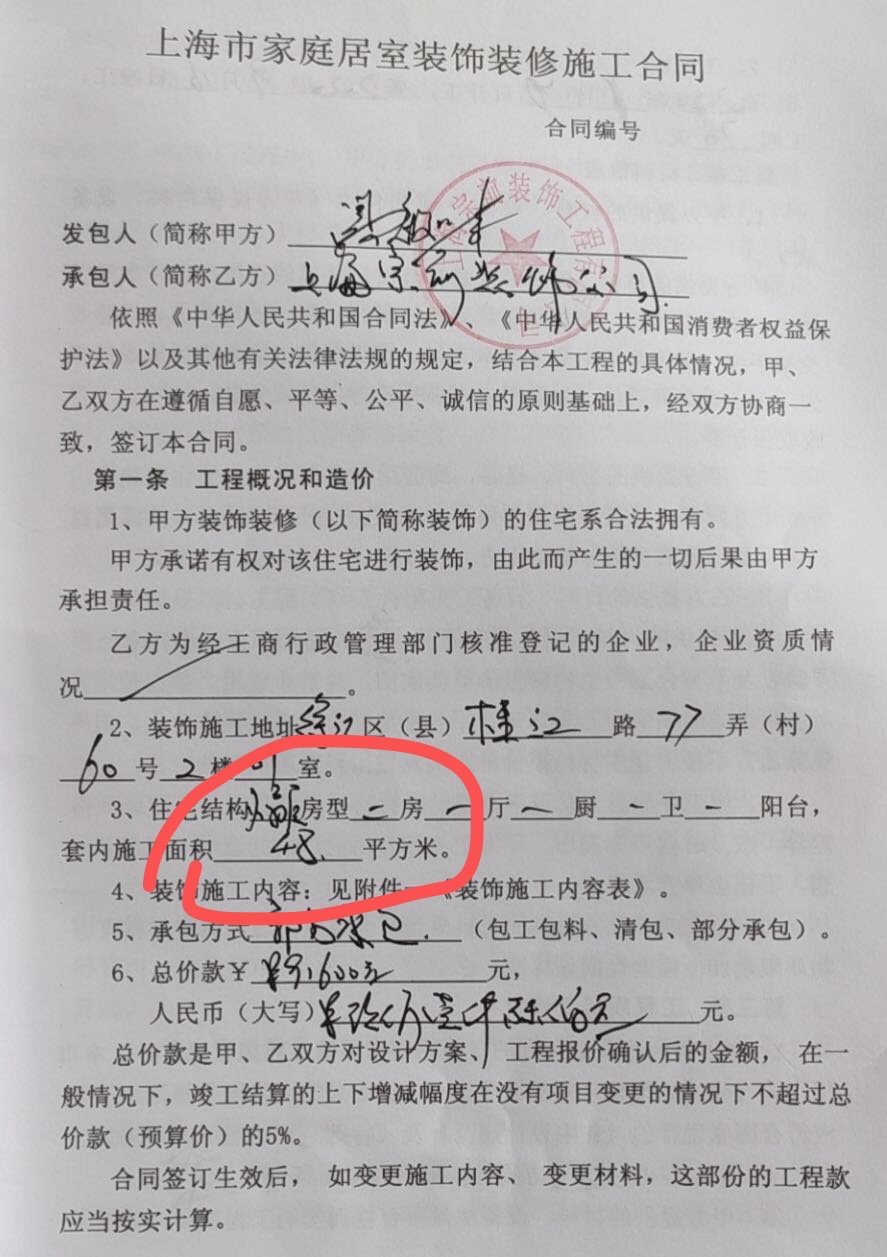 上海市家庭居室装饰装修施工合同
合同编号
发包人（简称甲方）
承包人（简称乙方）上海宗源装饰公司
依照《中华人民共和国合同法》、《中华人民共和国消费者权益保
护法》以及其他有关法律法规的规定，结合本工程的具体情况，甲、
乙双方在遵循自愿、平等、公平、诚信的原则基础上，经双方协商一
致，签订本合同。
第一条 工程概况和造价
1、甲方装饰装修（以下简称装饰）的住宅系合法拥有。
甲方承诺有权对该住宅进行装饰，由此而产生的一切后果由甲方
承担责任。
乙方为经工商行政管理部门核准登记的企业，企业资质情
况。
2、装饰施工地址徐汇区（县）桂江路77弄（村）
60号2楼 室。
3、住宅结构 房型二房一厅一厨一卫一阳台，
套内施工面积48平方米。
4、装饰施工内容：见附件一《装饰施工内容表》。
5、承包方式部分承包.（包工包料、清包、部分承包）。
6、总价款￥ ¥91600元元，
人民币（大写） 元。
总价款是甲、乙双方对设计方案、工程报价确认后的金额，在一
般情况下，竣工结算的上下增减幅度在没有项目变更的情况下不超过总
价款（预算价）的5%。
合同签订生效后， 如变更施工内容、变更材料，这部份的工程款
应当按实计算。